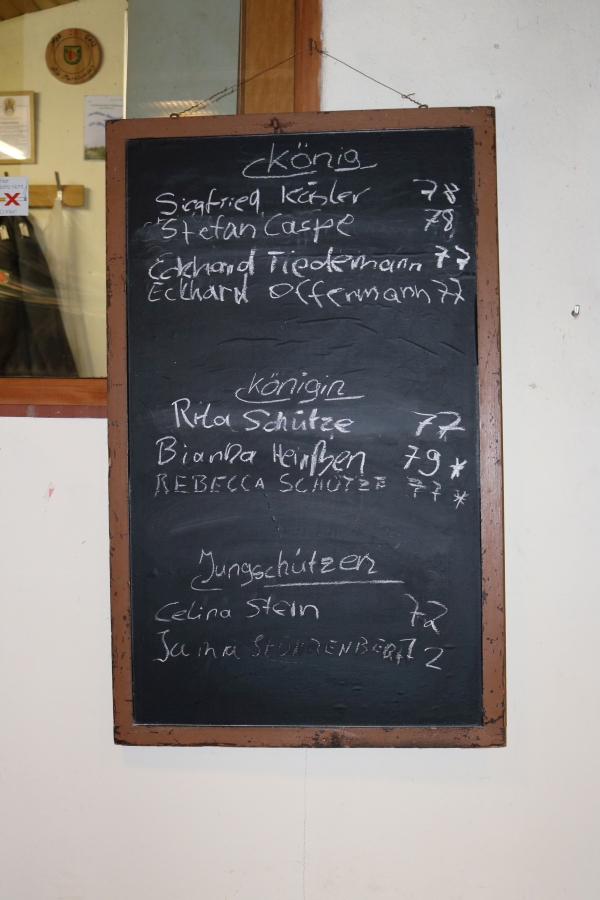 König
Siegfried Käsler 78
Stefan Caspe 78
Eckhard Tiedemann 77
Eckhard Offermann 77
Königin
Rita Schütze 77
Bianka Heinßen 79 *
REBECCA SCHÜTZE 77 *
Jungschützen
Celina Stern 72
Janna 72